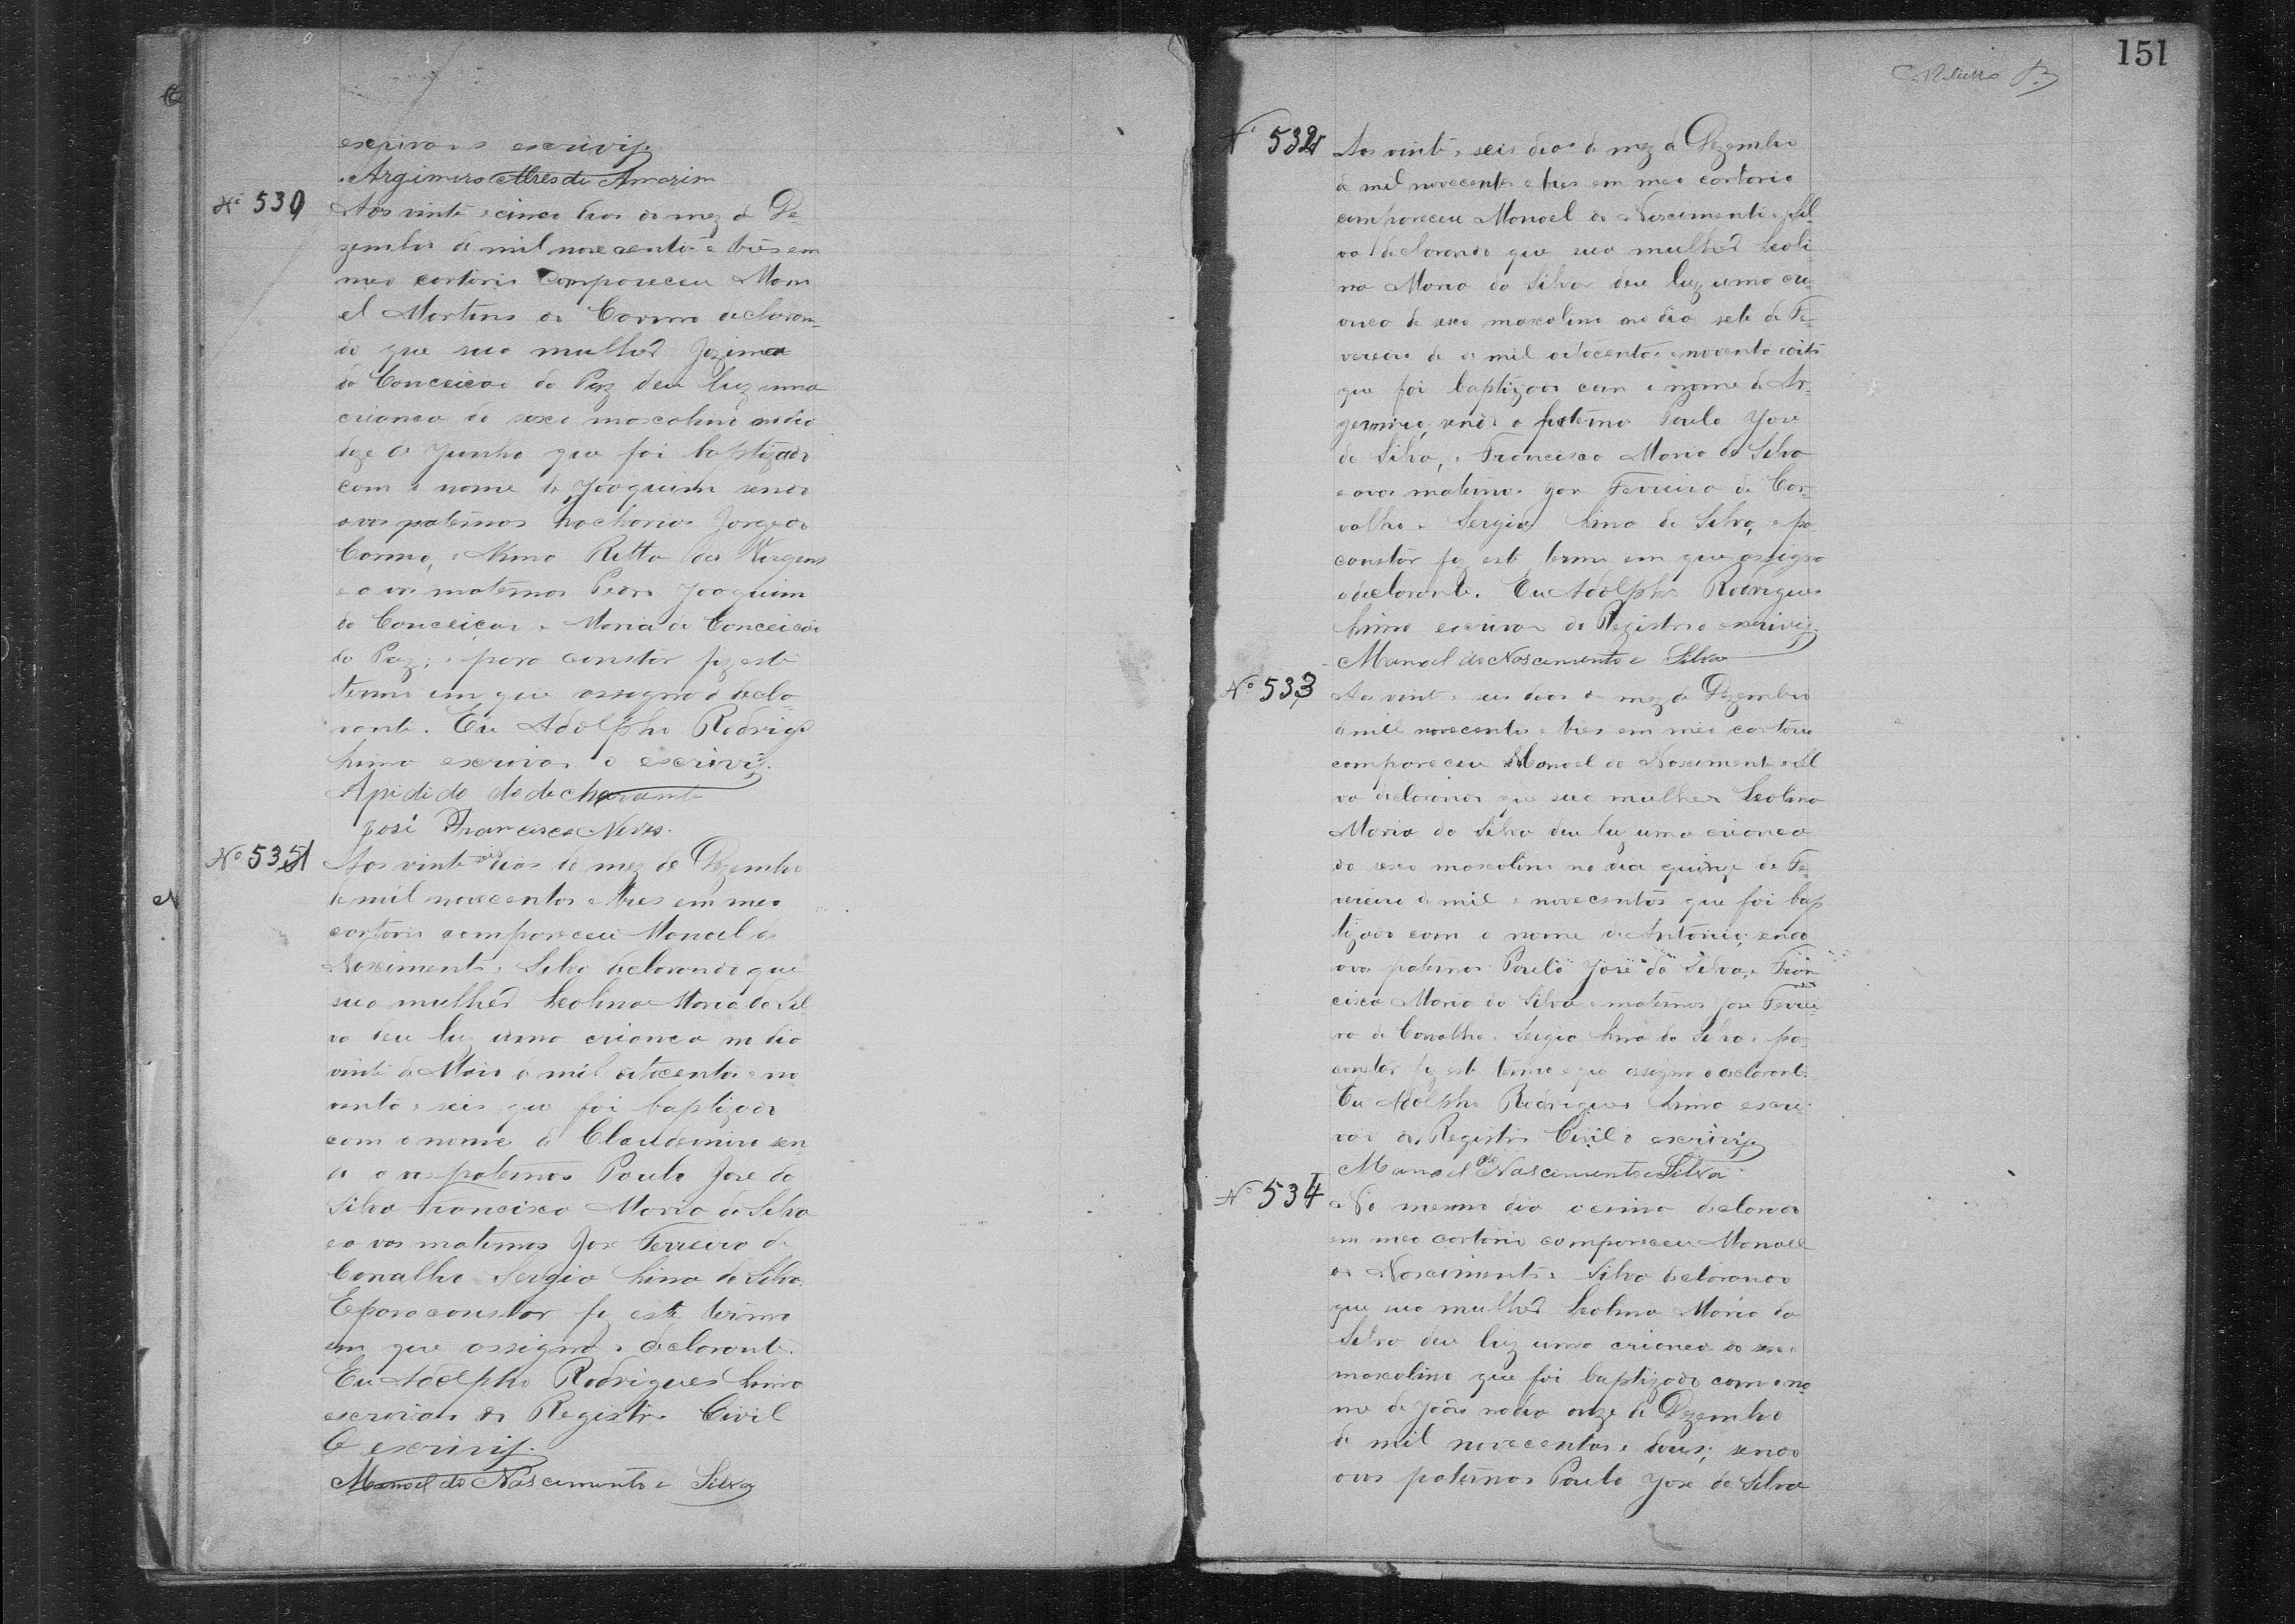 escrivão o escrivij.
Argimiro Alves de Amorim
Nº 530
Aos vinte e cinco dias do mez de De-
zembro de mil novecentos e tres em
meo cartorio compareceu Mano
el Martins do Carmo declaran-
do que sua mulher
da Conceicão da Paz deu luz uma
crianca do sexo mascolino no dia
doze de Junho que foi baptizado
com o nome de Joaquim sendo
avos paternos Jorge do
Carmo, e Anna Ritta das Virgens
e avos maternos Pedro Joaquim
da Conceiçao e Maria da Conceicão
da Paz; e para constar fiz este
termo em que assigno o decla
rante. Eu Adolpho Rodrigs
Lima escrivão o escrivij.
Apidido do decharante
José Francisco Neves.
Nº 531
Aos vinte seis dias do mez de Dezembro
de mil novecentos e tres em meo
cartorio compareceu Manoel do
Nascimento e Silva declarando que
sua mulher Leolina Maria da Sil
va deu luz uma crianca no dia
vinte de Maio de mil oitocentos e no
venta e seis que foi baptizado
com o nome de Claudemiro sen
do avos paternos Paulo Jose da
Silva Francisca Maria da Silva
e avos maternos Jose Ferreira de
Carvalho Sergia Lima da Silva.
E para constar fiz este termo
em que assigno o declarante.
Eu Adolpho Rodrigues Lima
escrivão do Registro Civil
O escrivij.
Manoel do Nascimento e Silva
151
Nº 532
Aos vinte e seis dias do mez de Dezembro
de mil novecentos e tres em meo cartorio
compareceu Manoel do Nascimento e Sil
va declarando que sua mulher Leoli
na Maria da Silva deu luz uma cri
anca de sexo mascolino no dia sete de Fe-
vereiro de mil oitocentos e noventa e oito
que foi baptizado com o nome de Ar-
gemiro, sendo o paterno Paulo Jose
da Silva, e Francisca Maria da Silva
e avos materno Jose Ferreira de Car-
valho e Sergia Lima da Silva, e pa
constar fiz este termo em que assigno
o declarante. Eu Adolpho Rodrigues
Lima escrivão do Registro o escrivij.
Manoel do Nascimento e Silva
Nº 533
Aos vinte e seis dias do mez de Dezembro
de mil novecentos e tres em meo cartorio
compareceu Manoel do Nascimento e Sil
va declarando que sua mulher Leolina
Maria da Silva deu luz uma crianca
do sexo mascolino no dia quinze de Fe-
vereiro de mil e novecentos que foi bap
tizado com o nome de Antonio; sendo
avos paternos Paulo José da Silva, e Fran
cisca Maria da Silva e maternos Jose Ferrei
ra de Carvalho e Sergia Lima da Silva e pa
constar fiz este termo e que assigno o declarante.
Eu Adolpho Rodrigues Lima escri
vão do Registro Civil o escrivij
Manoel do Nascimento e Silva
Nº 534
No mesmo dia acima declarado
em meo cartorio compareceu Manoel
do Nascimento e Silva declarando
que sua mulher Leolina Maria da
Silva deu luz uma crianca do sexo
mascolino que foi baptizado com o no
me de João no dia onze de Dezembro
de mil novecentos e dous; sendo
avos paternos Paulo Jose da Silva